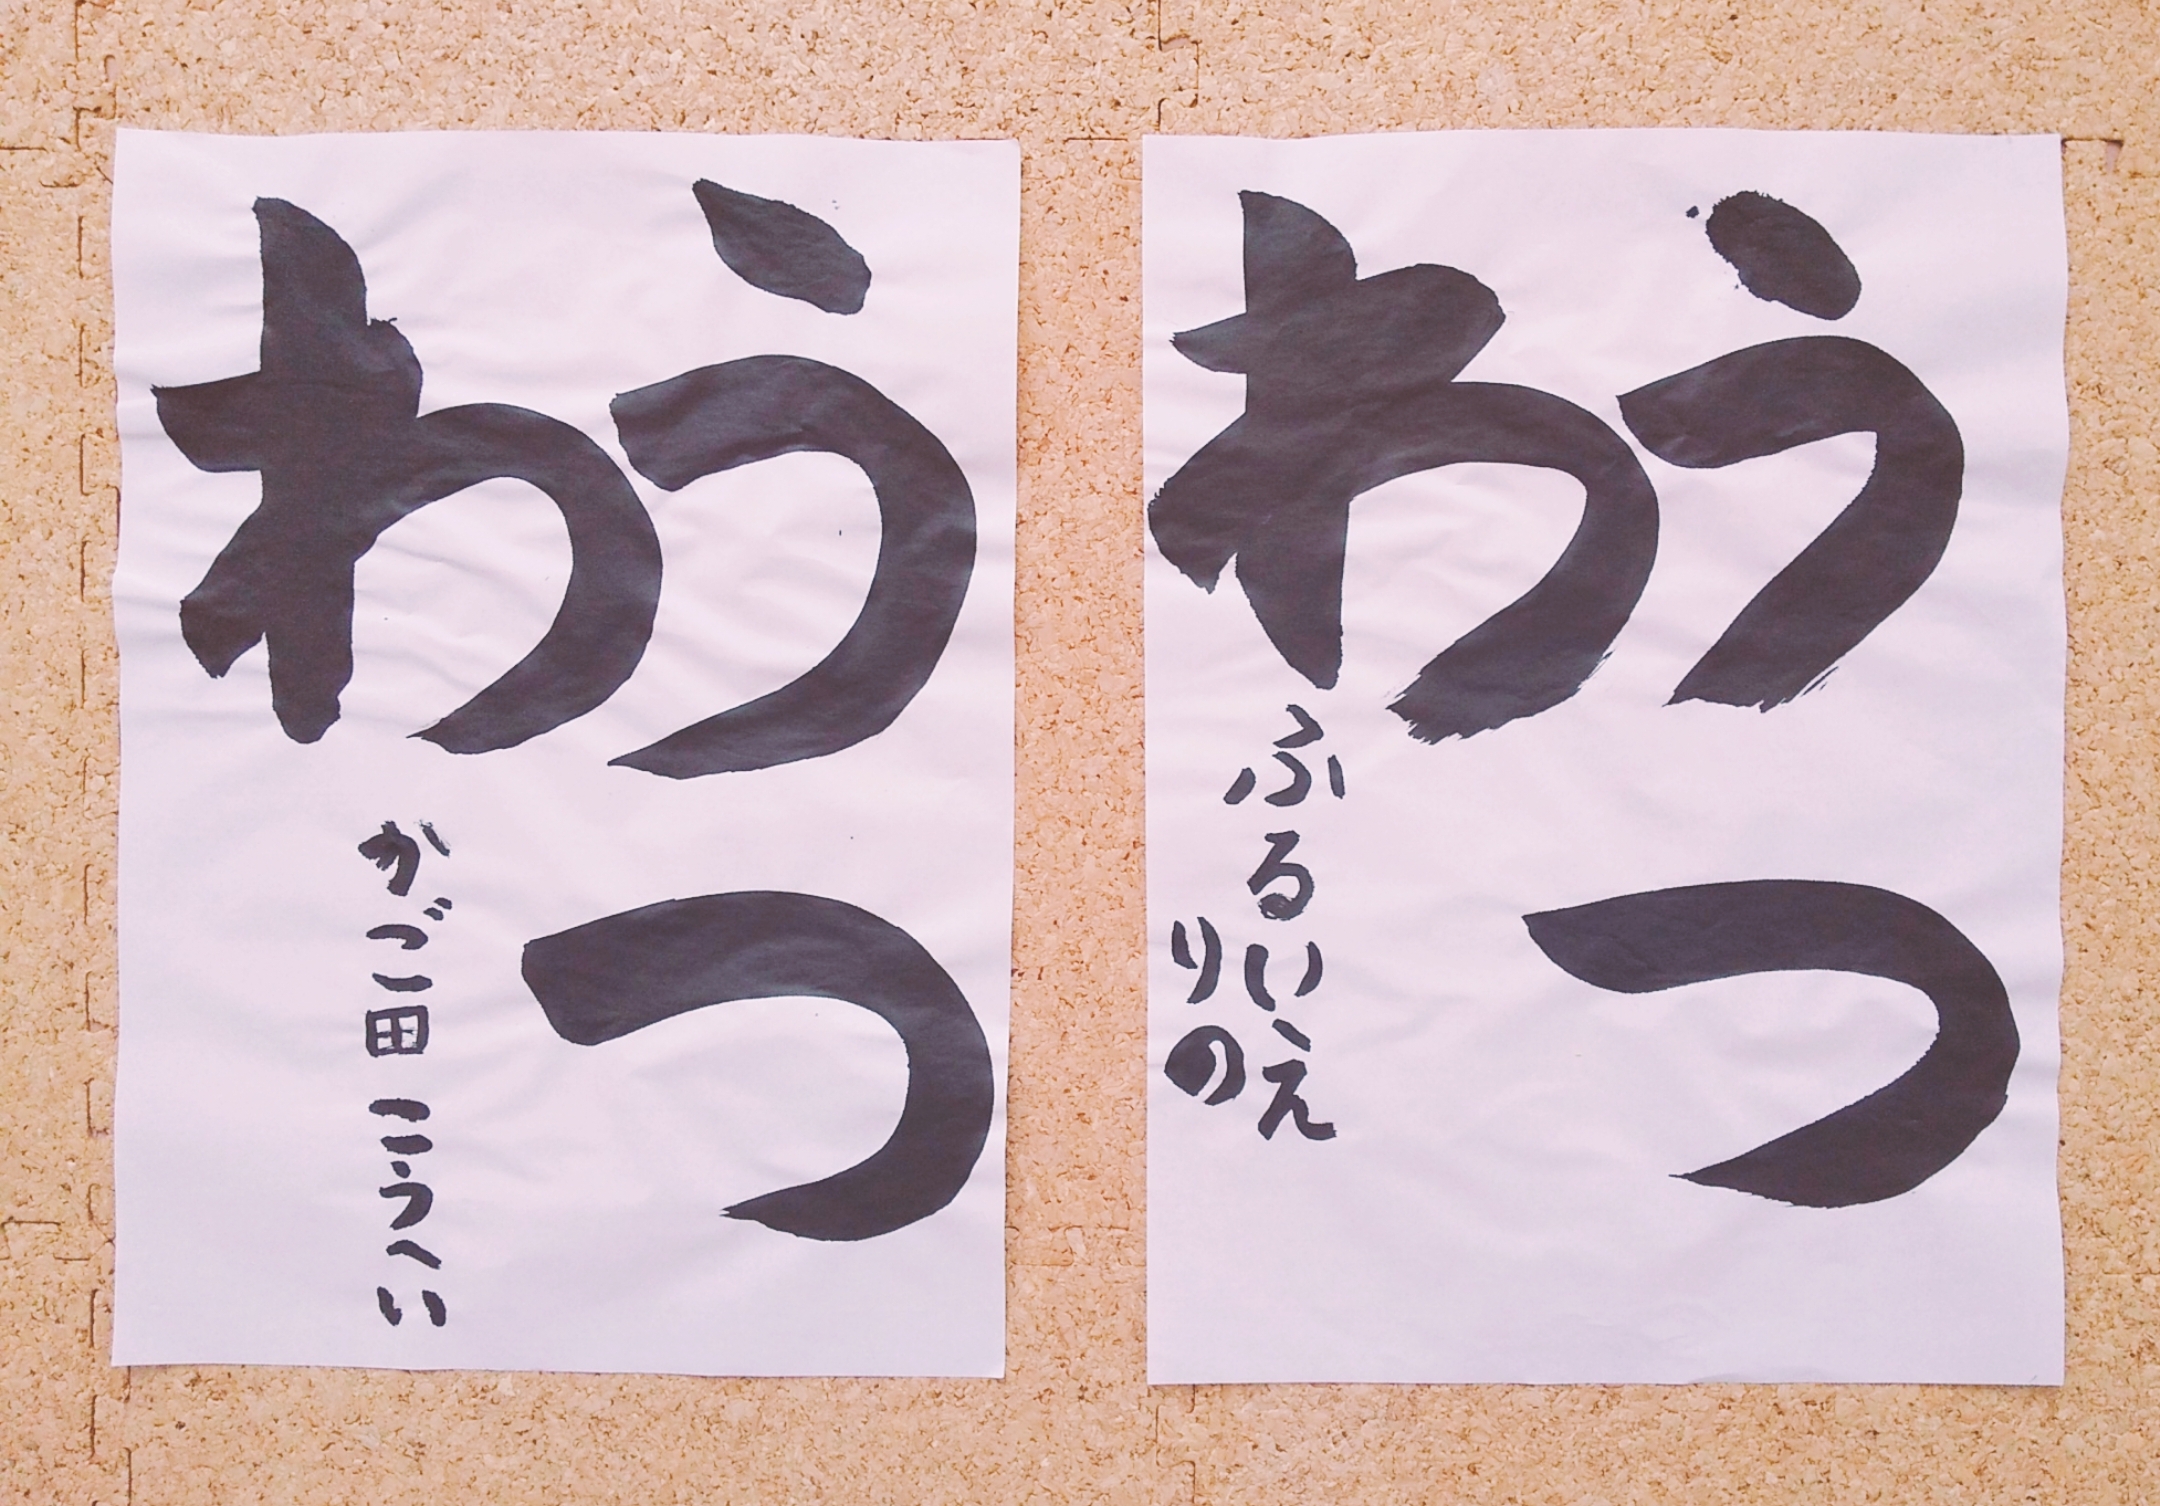 うつ
わ
ふるいえ
りの
うつ
わ
かご田 こうへい